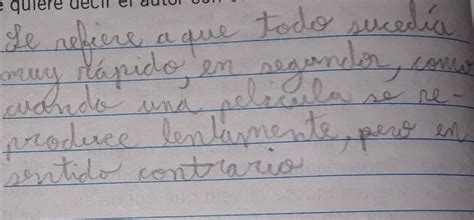 e quiere decir el autor con
Se refiere a que todo sucedía
muy rápido, en segundos, como
cuando una película se re-
produce lentamente, pero en
sentido contrario